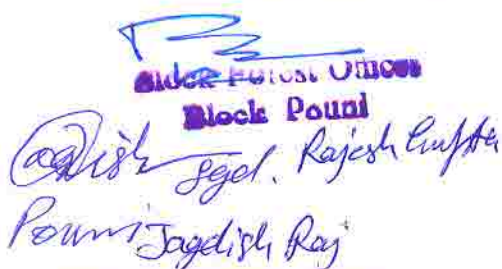 Block Forest Officer
Block Pouni
Jagdish Sgd. Rajesh Gupta
Pouni Jagdish Raj